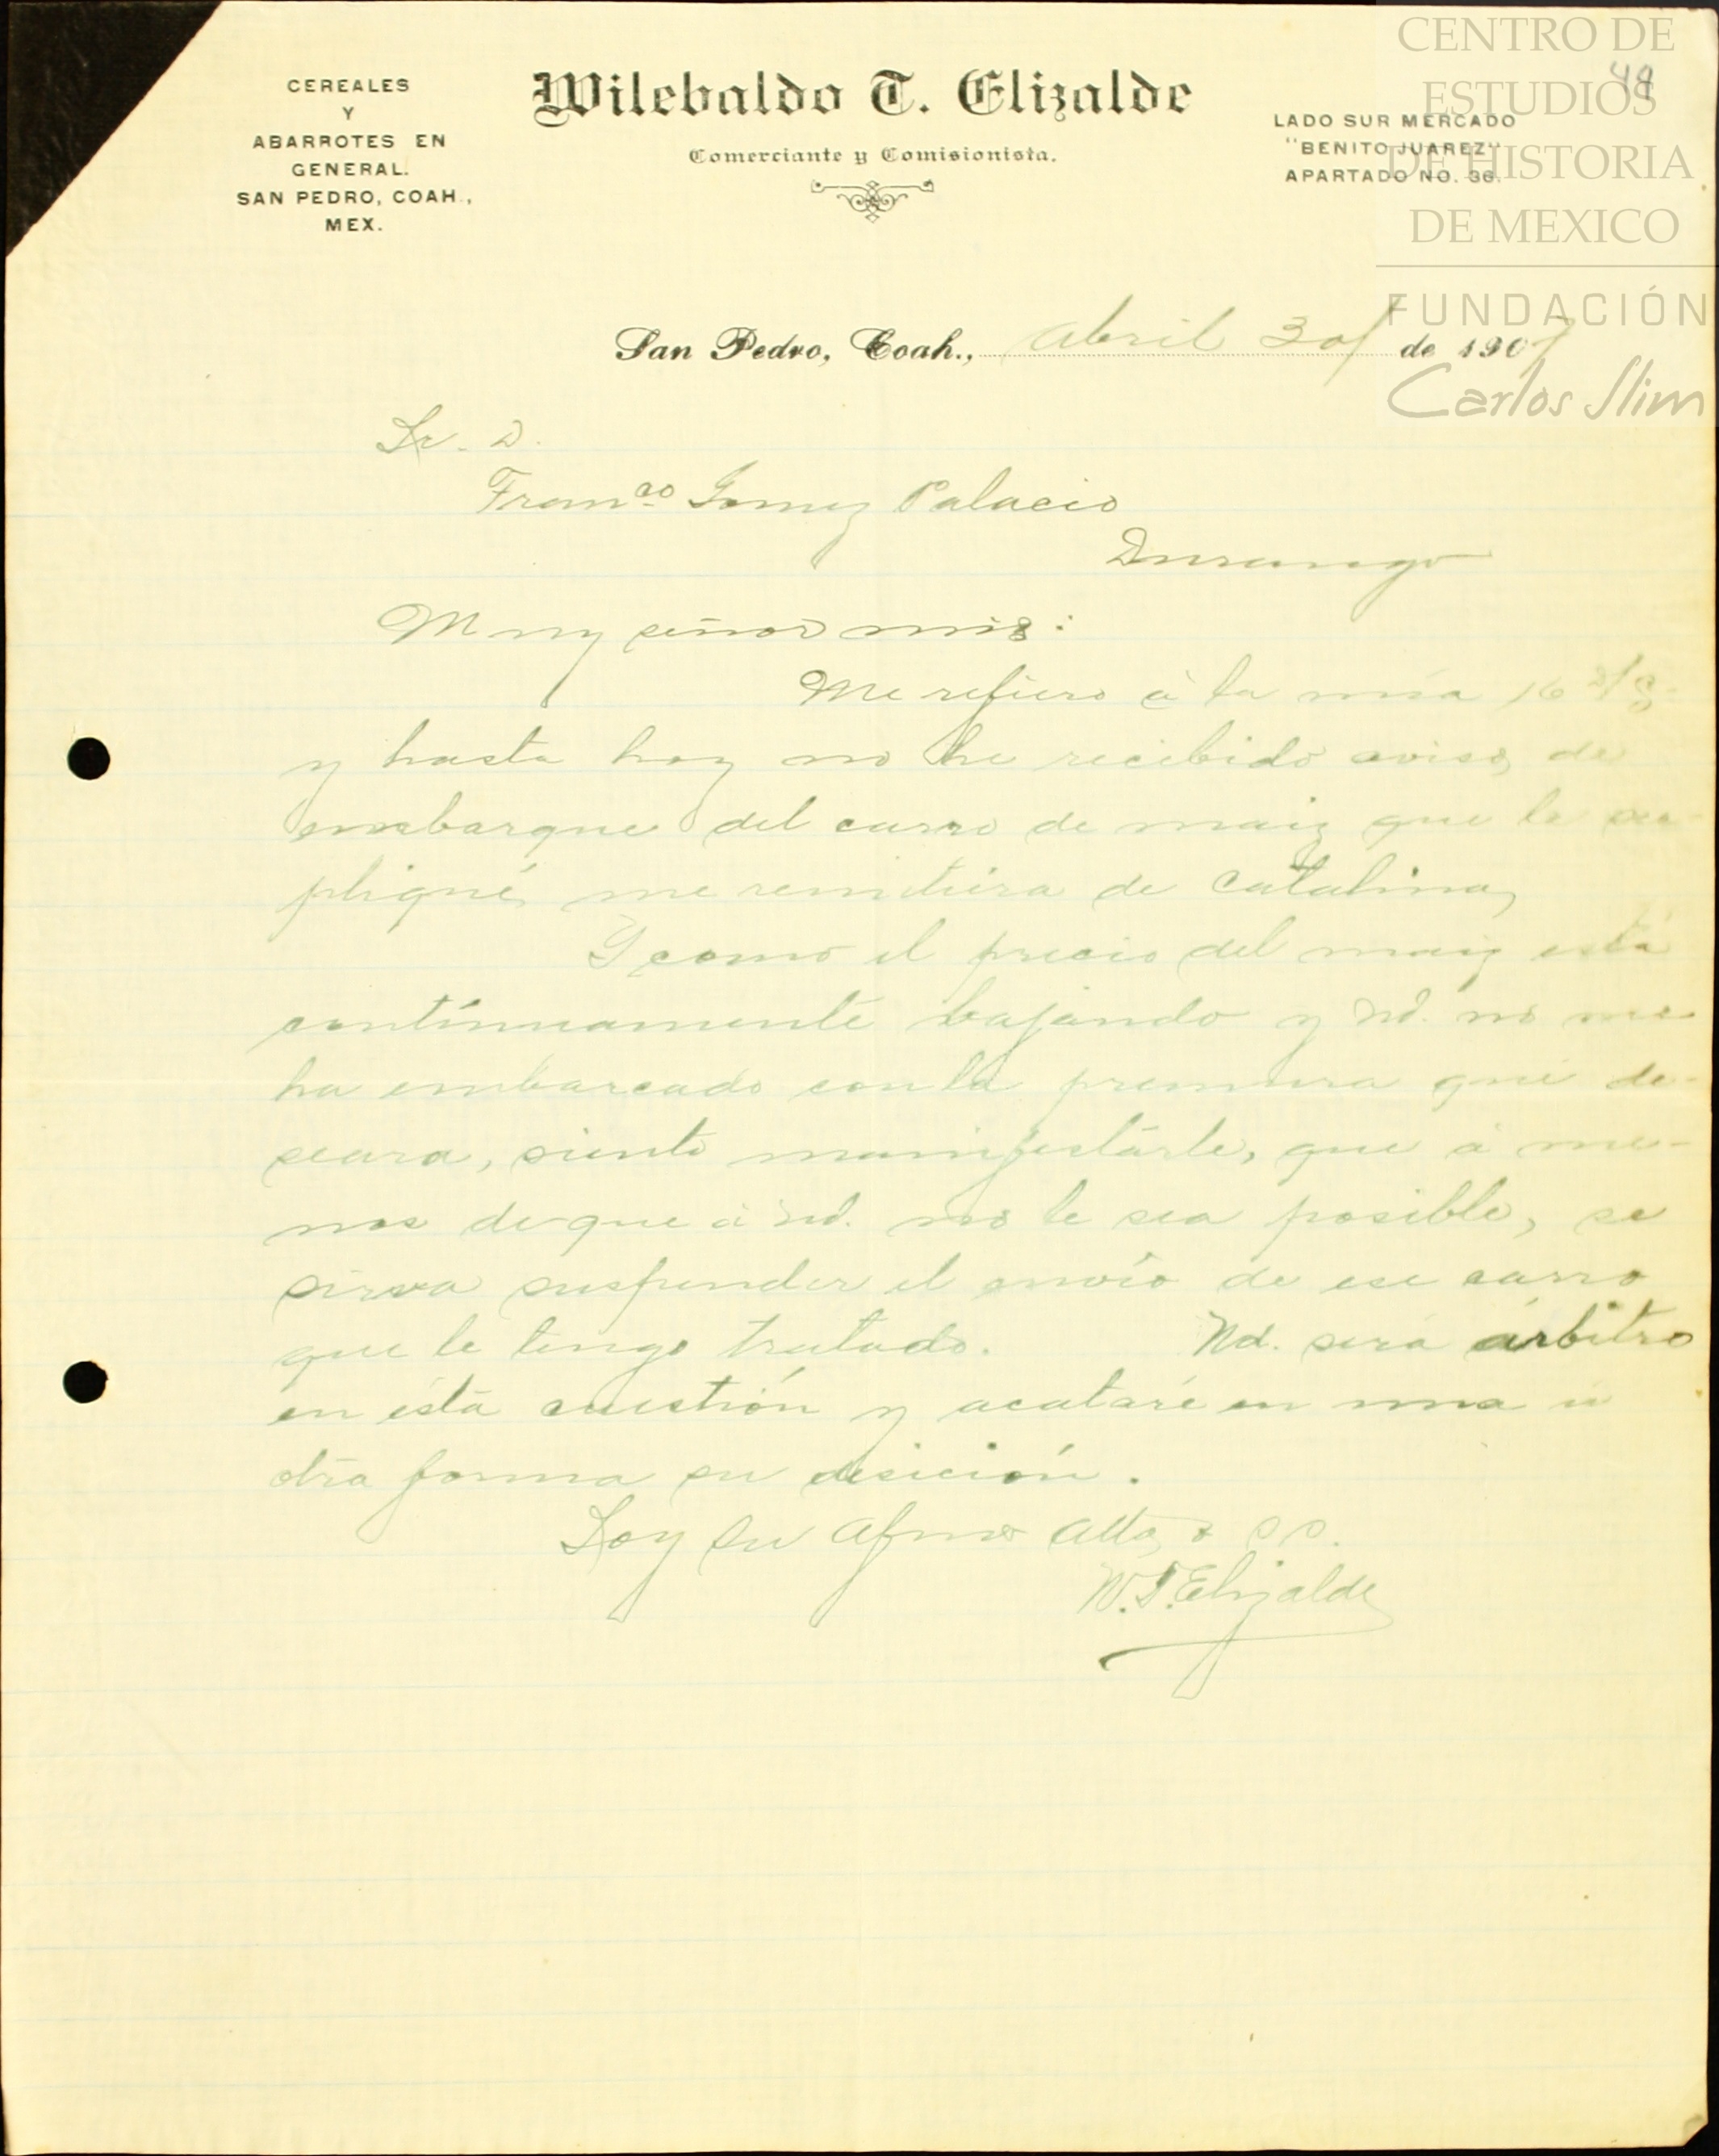 CENTRO DE
ESTUDIOS
DE HISTORIA
DE MEXICO
FUNDACIÓN
Carlos Slim
49
CEREALES
Y
ABARROTES EN
GENERAL.
SAN PEDRO, COAH.,
MEX.
Wilebaldo T. Elizalde
Comerciante y Comisionista.
LADO SUR MERCADO
"BENITO JUAREZ"
APARTADO NO. 36.
San Pedro, Coah., Abril 30/ de 1907
Sr. D.
Franco Gomez Palacio
Durango
Muy señor mio:
Me refiero á la mia 16
y hasta hoy no he recibido aviso de
embarque del carro de maiz que le su-
pliqué me remitiera de Catalina,
Y como el precio del maiz está
contínuamente bajando y Ud. no me
ha embarcado con la premura que de-
seara, siento manifestárle, que á me-
nos de que á Ud. no le sea posible, se
sirva suspender el envío de ese carro
que le tengo tratado. Ud. será árbitro
en ésta cuestión y acataré en una ú
otra forma su desición.
Soy su afmo atto y S S.
W. T. Elizalde